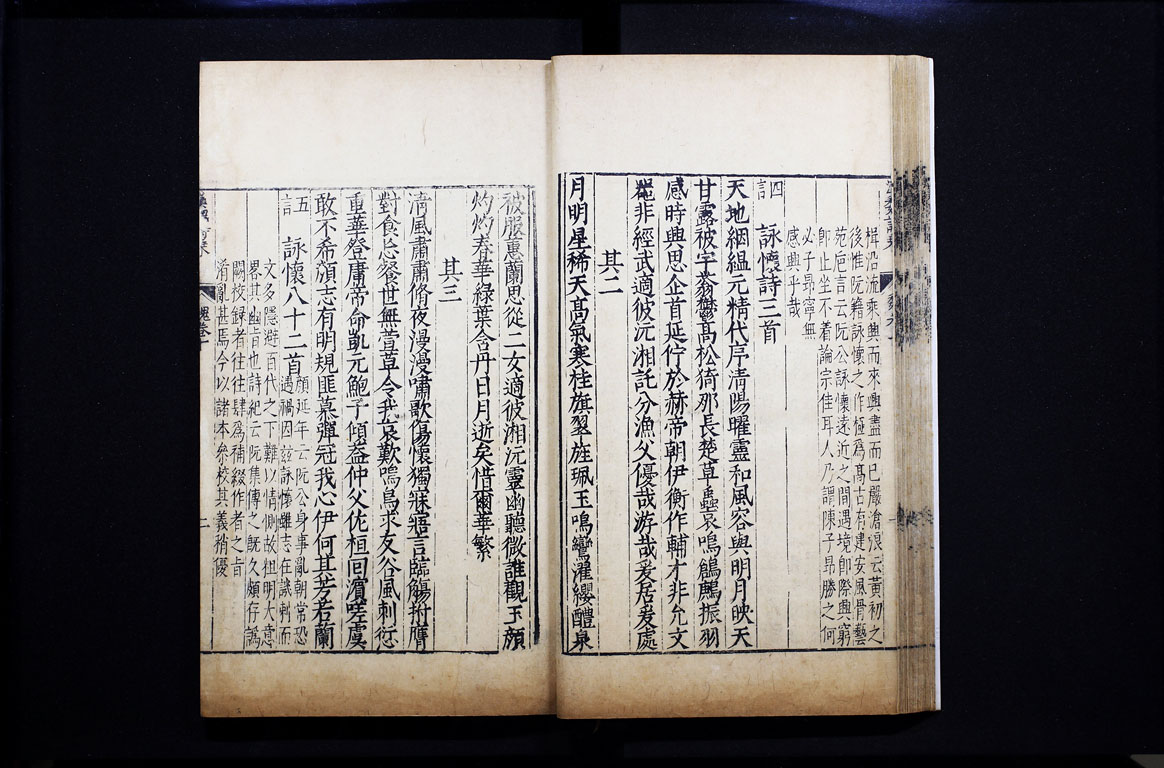 楫沿流乘興而來興盡而已嚴滄浪云黃初之
後惟阮籍詠懷之作極爲髙古有建安風骨藝
苑巵言云阮公詠懷遠近之間遇境即際興窮
即止坐不着論宗佳耳人乃謂陳子昻勝之何
必子昻寧無
感興乎哉
四言 詠懷詩三首
天地絪緼元精代序清陽曜靈和風容與明月映天
甘露被宇蓊鬱髙松猗那長楚草蟲哀鳴鶬鶊振羽
感時興思企首延佇於赫帝朝伊衡作輔才非允文
噐非經武適彼沅湘託分漁父優哉游哉爰居爰處
其二
月明星稀天髙氣寒桂旗翠旌珮玉鳴鸞濯纓醴泉
被服蕙蘭思從二女適彼湘沅靈幽聽微誰觀玉顔
灼灼春華綠葉含丹日月逝矣惜爾華繁
其三
清風肅肅脩夜漫漫嘯歌傷懷獨寐寤言臨觴拊膺
對食忘餐世無萱草令我哀歎鳴鳥求友谷風刺愆
重華登庸帝命凱元鮑子傾盖仲父佐桓囘濵嗟虞
敢不希顔志有明規匪慕彈冠我心伊何其芳若蘭
五言 詠懷八十二首 顔延年云阮公身事亂朝常恐
遇禍因兹詠懷雖志在譏刺而
文多隱避百代之下難以情測故粗明大意
畧其幽旨也詩紀云阮集傳之旣久頗存譌
闕挍録者往往肆爲補綴作者之旨
淆亂甚焉今以諸本叅校其義稍優